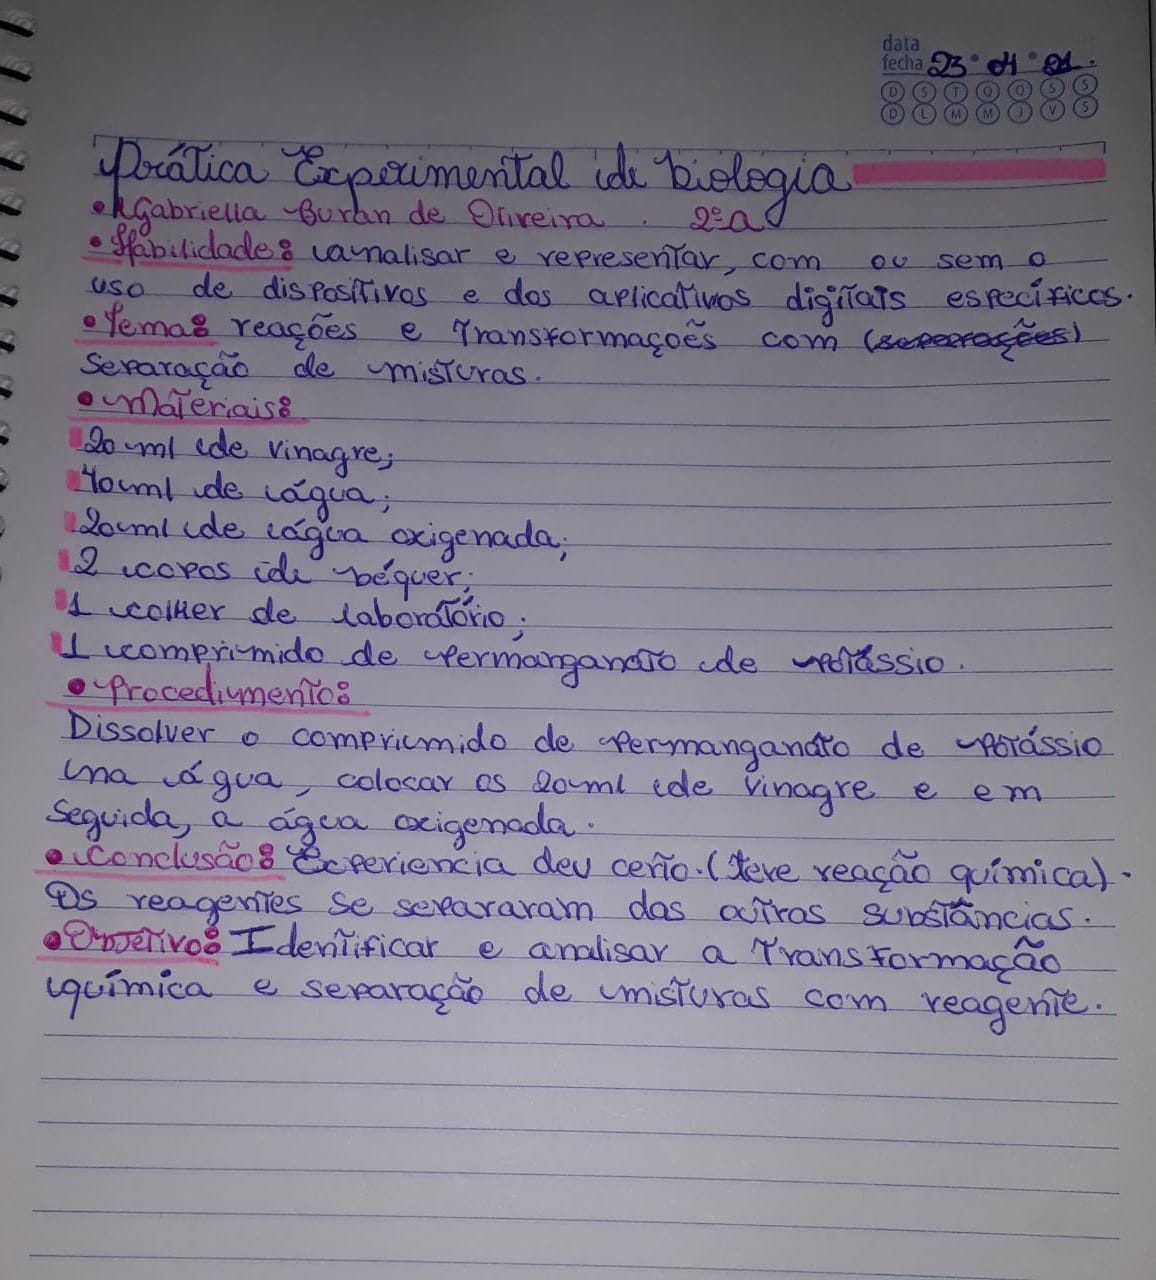 data
fecha 23 04 21.
D S T Q Q S S
D L M M J V S
Prática Experimental de biologia
• Gabriella Buran de Oliveira. 2º a
• Habilidade: analisar e representar, com ou sem o
uso de dispositivos e dos aplicativos digitais específicos.
• Tema: reações e Transformações com (seperações)
Separação de misturas.
• Materiais:
20 ml de vinagre;
40 ml de água;
20 ml de água oxigenada;
2 copos de béquer;
1 colher de laboratório;
1 comprimido de permanganato de potássio.
• Procedimento:
Dissolver o comprimido de permanganato de potássio
na água, colocar os 20 ml de vinagre e em
seguida, a água oxigenada.
• Conclusão: Experiencia deu certo. (teve reação química).
Os reagentes se separaram das outras substâncias.
• Objetivo: Identificar e analisar a Transformação
química e separação de misturas com reagente.